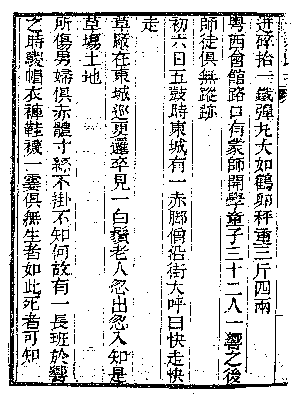 迸碎拾一鐵彈丸大如鶴卵秤重三斤四兩
粵西會館路口有蒙師開學童子三十二人一響之後
師徒俱無蹤跡
初六日五鼓時東城有一赤脚僧沿街大呼曰快走快
走
草廠在東城巡更邏卒見一白鬚老人忽出忽入知是
草塲土地
所傷男婦俱赤體寸絲不掛不知何故有一長班於響
之時騣帽衣褲鞋襪一霎俱無生者如此死者可知